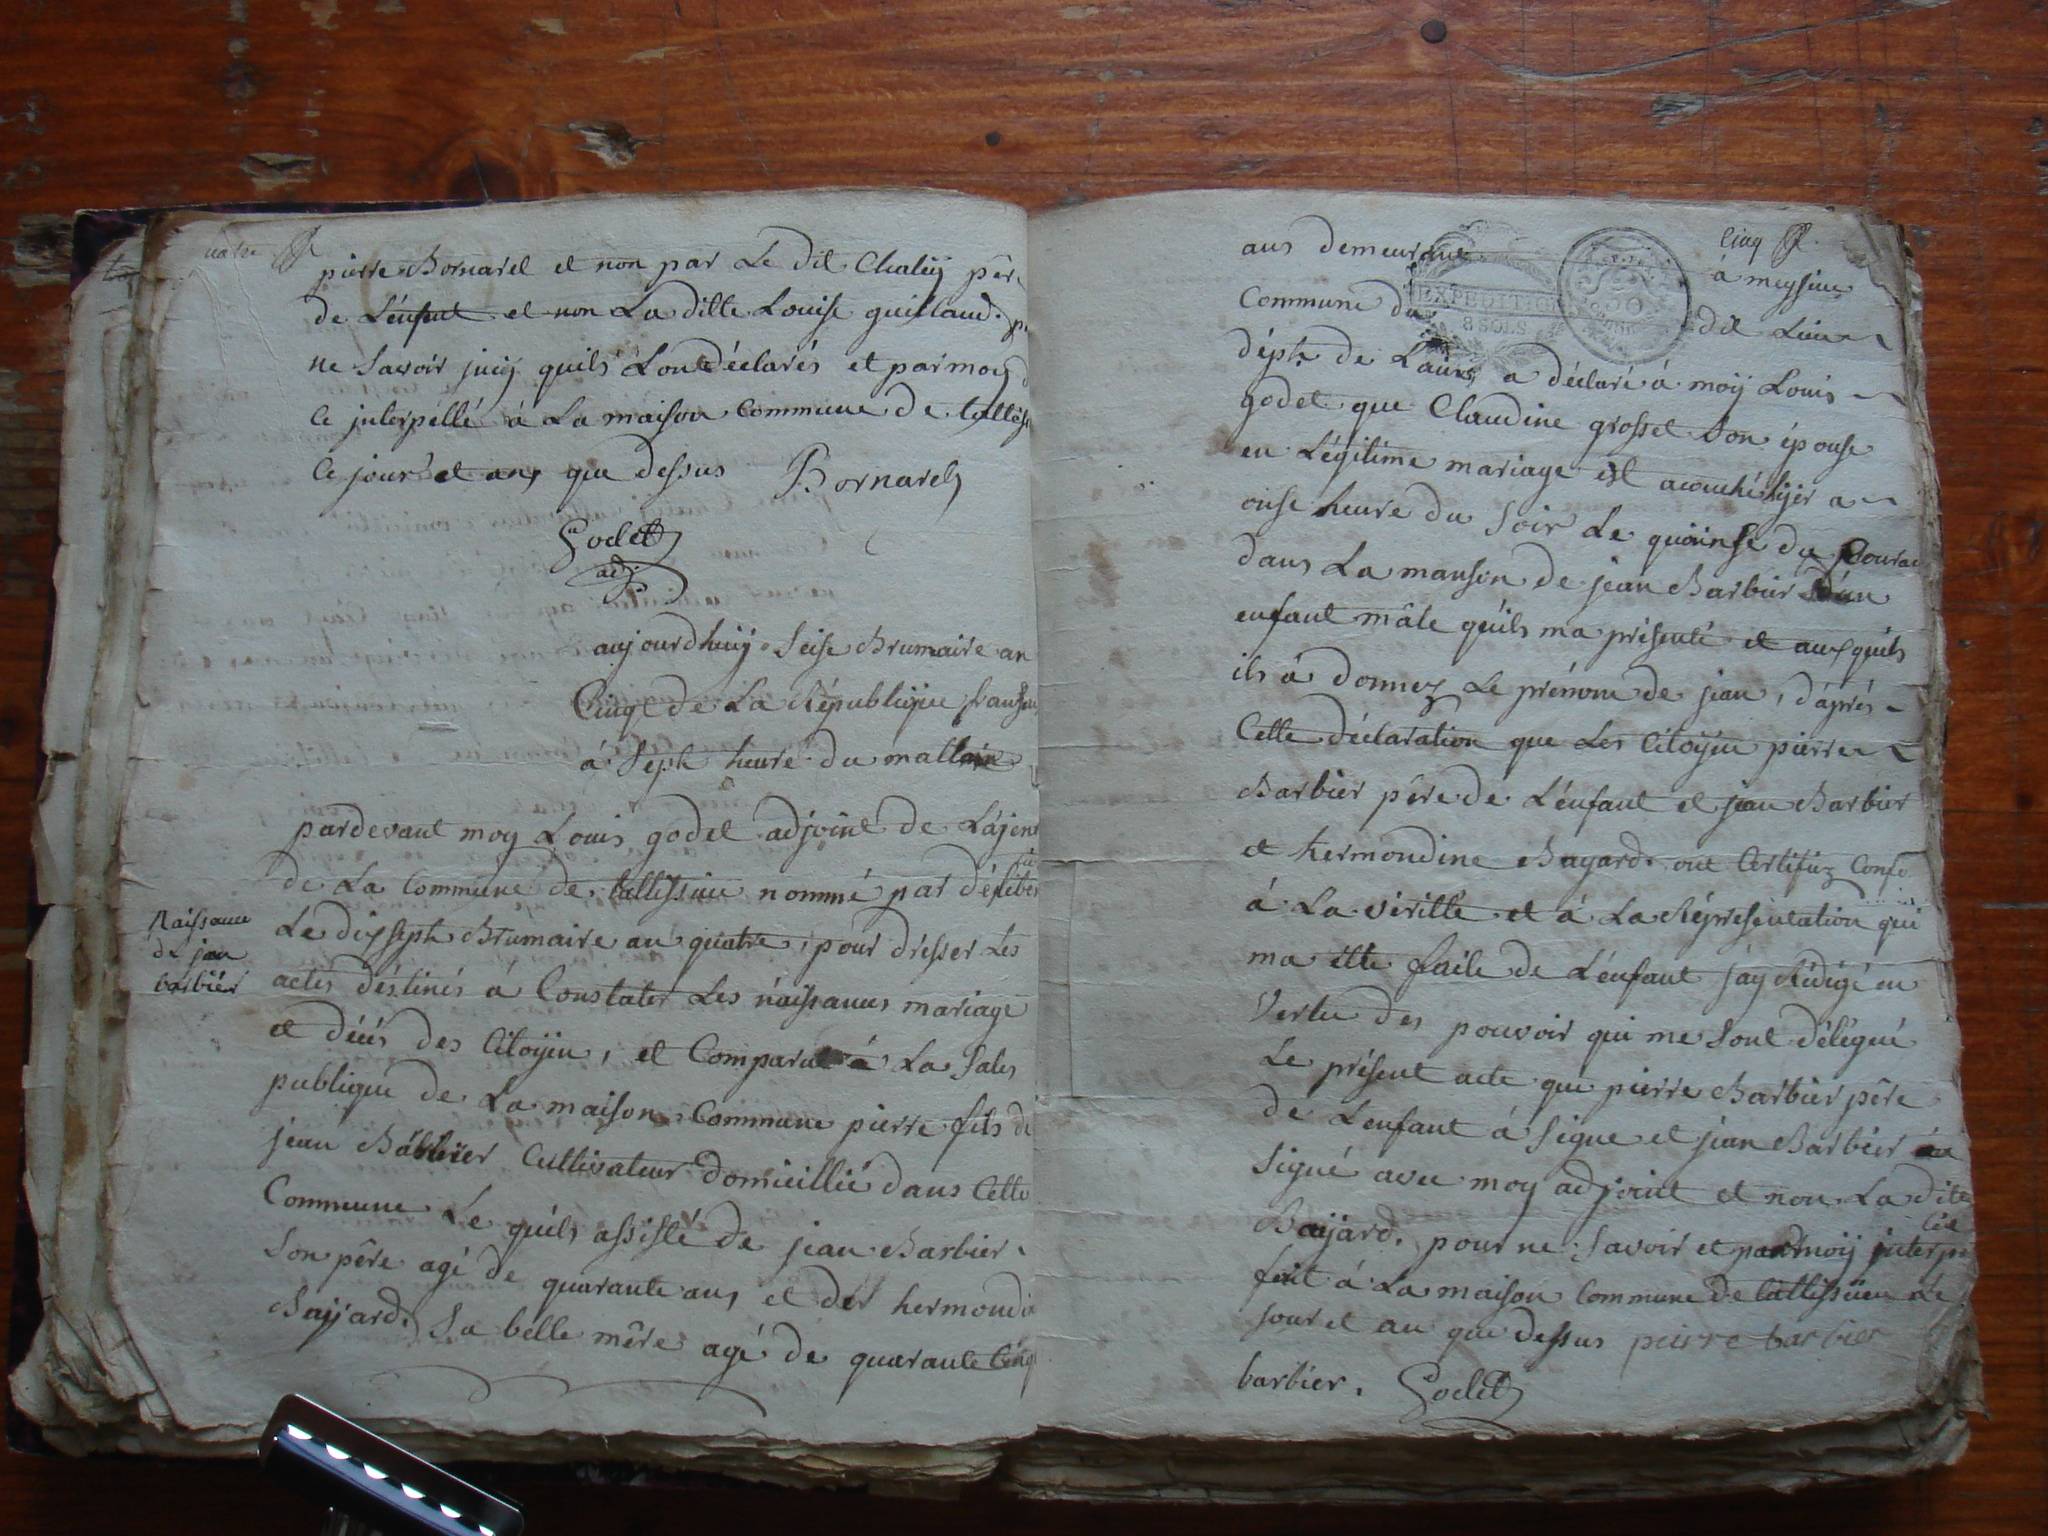 pierre Bornarel et non par Le dit Chaley père
de L'enfent et non La ditte Louise guillaud.
ne Savoir jucy quils Lont déclarés et par moy
Ce interpellé à La maison Commune de
Ce jour et ans que dessus Bornarel
Godet
adj.
aujourdhuy Seise Brumaire an
Cinq de La République
à Seph heure du mattain
pardevant moy Louis godet adjoint de L'ajent
de La Commune de tallissieu nommé par
Le dixseph Brumaire an quatre, pour dresser Les
actes déstinés à Constater Les naissances mariage
et décés des Citoyien, et Comparut à La Sales
publique de La maison Commune pierre fils de
jean Barbier Cultivateur domicillié dans Cette
Commune Le quils assisté de jean Barbier
Son père agé de quarante ans et der
Bayard. Sa belle mère agé de quarante Cinq
Naissance
de jean
barbier
Cinq
ans demeurant à
Commune du dit Lieu
dépt. de Lain, a déclaré à moÿ Louis
godet que Claudine grosset Son épouse
en Légitime mariage est acouché hyer a
onse heure du Soir Le quinse du Courant
dans La maison de jean Barbier d'un
enfant mâle quils ma présenté et auxquils
ils à donnez Le prénom de jean, d'après
Cette déclaration que Les Citoyien pierre
Barbier père de L'enfant et jean Barbier
et hermondine Bayard. ont Certifiez
à La véritté et à La Réprésentation qui
ma etté faite de L'enfant jay Rédigé en
Vertu des pouvoir qui me Sont délégué
Le présent acte que pierre Barbier père
de L'enfant à Signe et jean Barbier
Signé avec moy adjoint et non La dite
Bayard. pour ne Savoir et par moÿ
fait à La maison Commune de tallissieu Le
jour et an que dessus pierre barbier
barbier. Godet
EXPEDITION
8 SOLS